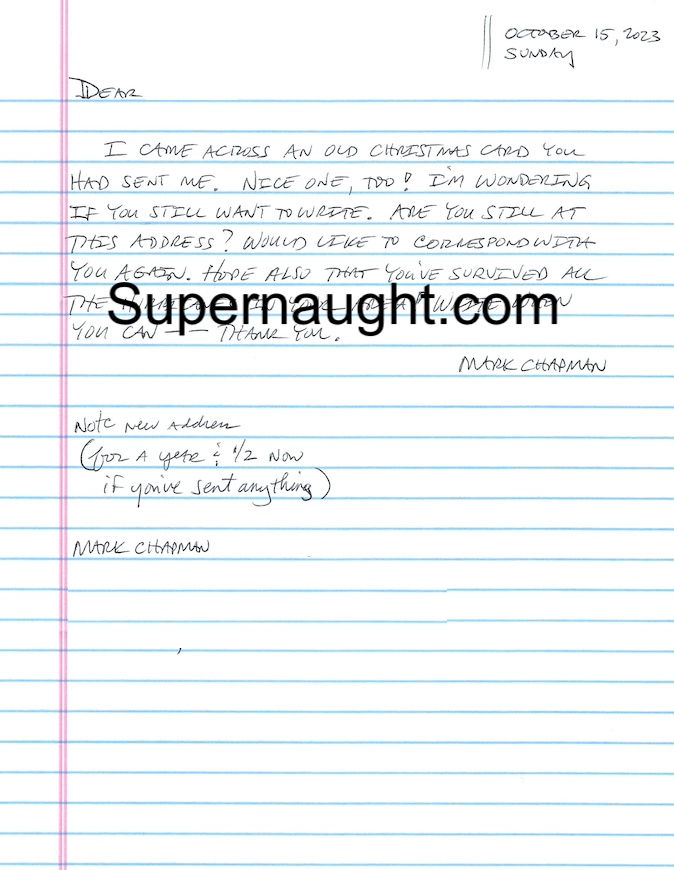 OCTOBER 15, 2023
SUNDAY
DEAR
I CAME ACROSS AN OLD CHRISTMAS CARD YOU
HAD SENT ME. NICE ONE, TOO! I'M WONDERING
IF YOU STILL WANT TO WRITE. ARE YOU STILL AT
THIS ADDRESS? WOULD LIKE TO CORRESPOND WITH
YOU AGAIN. HOPE ALSO THAT YOU'VE SURVIVED ALL
THE HURRICANES IN YOUR AREA! WRITE WHEN
Supernaught.com
YOU CAN — — THANK YOU.
MARK CHAPMAN
Note new address
(for a year & 1/2 now
if you've sent anything)
MARK CHAPMAN